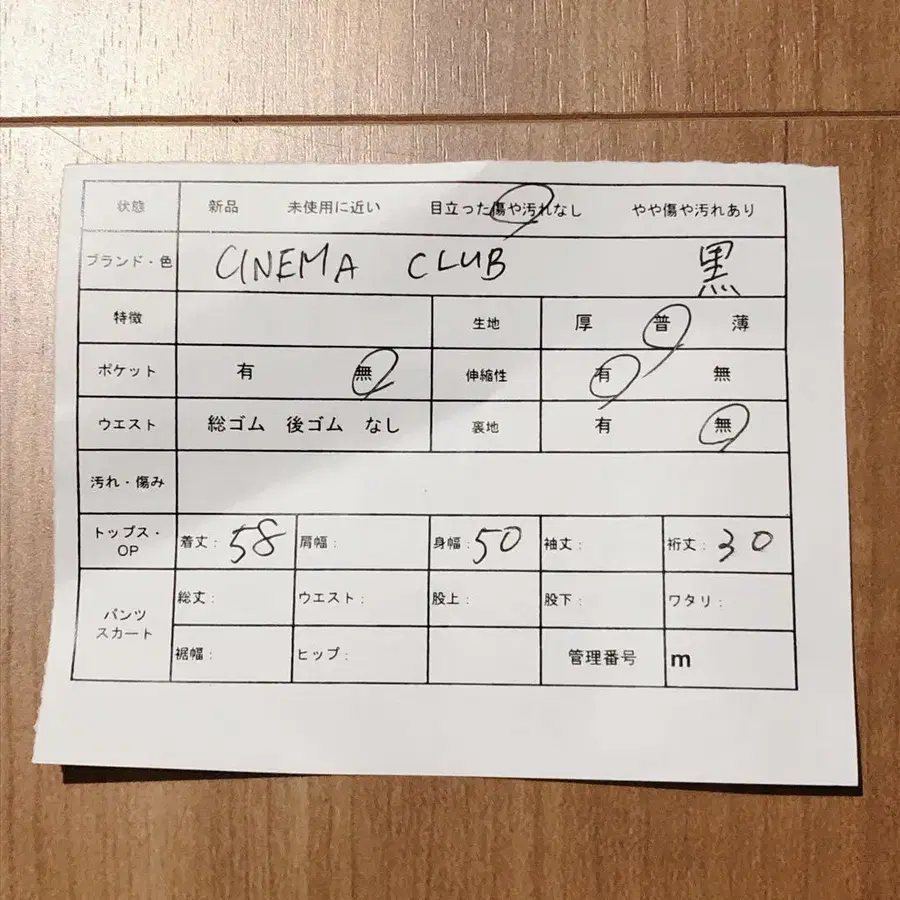 状態 新品 未使用に近い 目立った傷や汚れなし やや傷や汚れあり
ブランド・色 CINEMA CLUB 黒
特徴 生地 厚 普 薄
ポケット 有 無 伸縮性 有 無
ウエスト 総ゴム 後ゴム なし 裏地 有 無
汚れ・傷み
トップス・OP 着丈: 58 肩幅: 身幅: 50 袖丈: 裄丈: 30
パンツ スカート 総丈: ウエスト: 股上: 股下: ワタリ:
裾幅: ヒップ: 管理番号 m